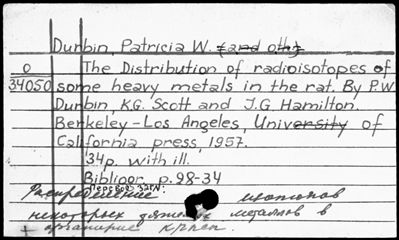 Durbin, Patricia W. (and oth)
О
34050
The Distribution of radioisotopes of
some heavy metals in the rat. By P.W.
Durbin, K.G. Scott and J.G. Hamilton.
Berkeley-Los Angeles, University of
California press, 1957.
34p. with ill.
Bibliogr. p.28-34
Перевод загл:
Распределение изотопов
некоторых металлов в
организме крысы.